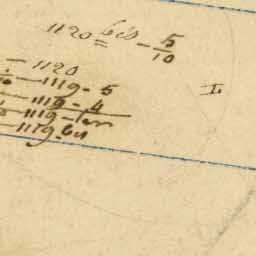 1120 bis - 5/10
- 1120
/10 - 1119 - 5
- 1119 - 4
- 1119 - ter
- 1119 - bis
I.